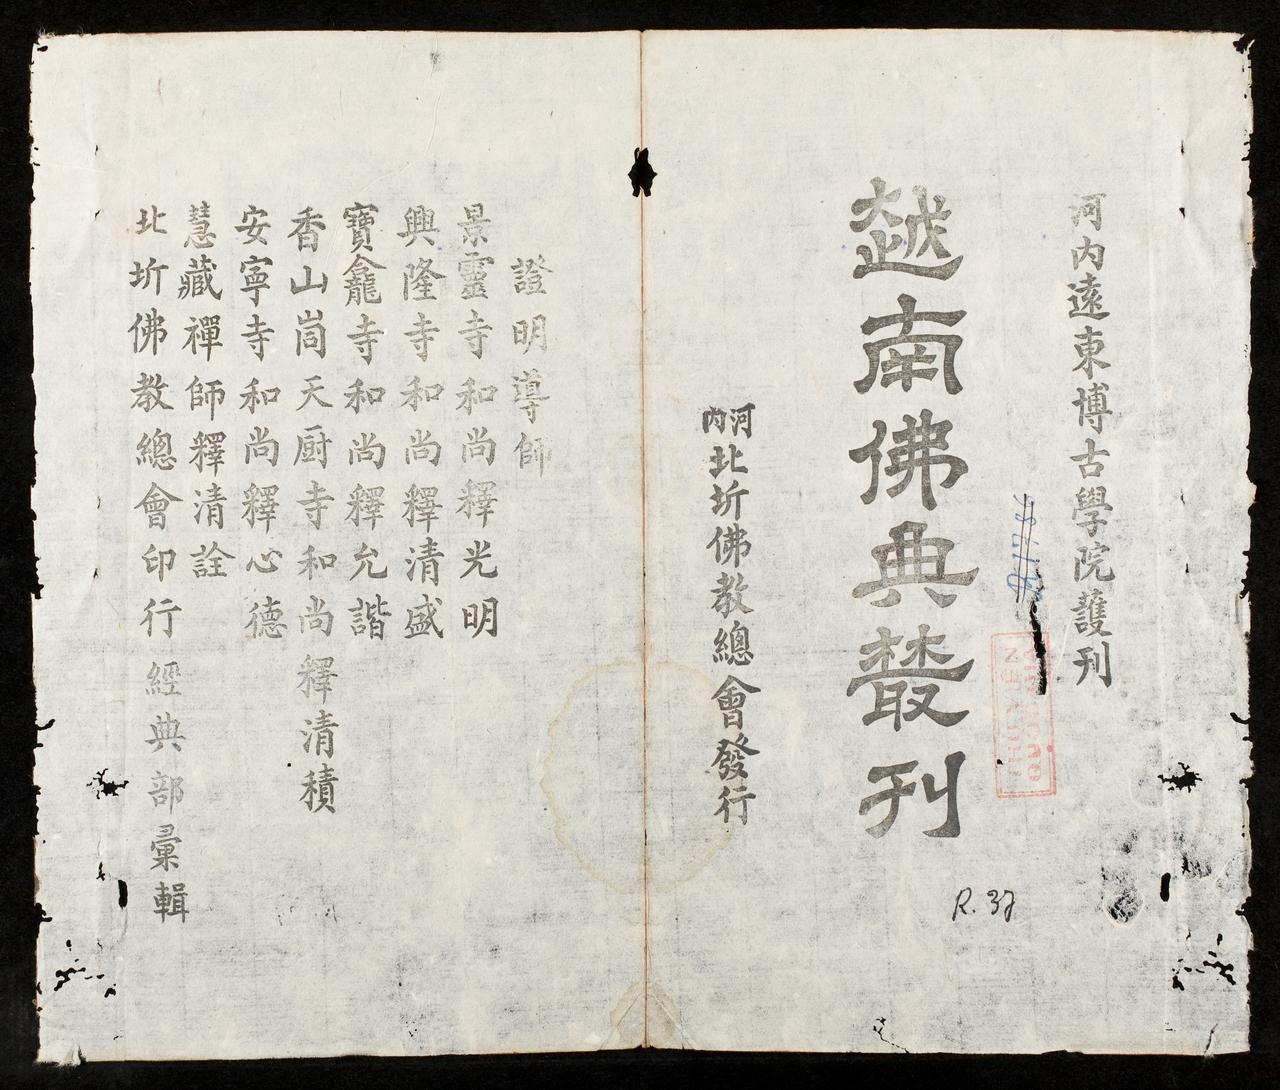 河内遠東博古學院護刊
越南佛典叢刊
河内北圻佛教總會發行
R.32
證明導師
景靈寺和尚釋光明
興隆寺和尚釋清盛
寶龕寺和尚釋允諧
香山峝天厨寺和尚釋清積
安寧寺和尚釋心德
慧藏禪師釋清詮
北圻佛教總會印行經典部彙輯